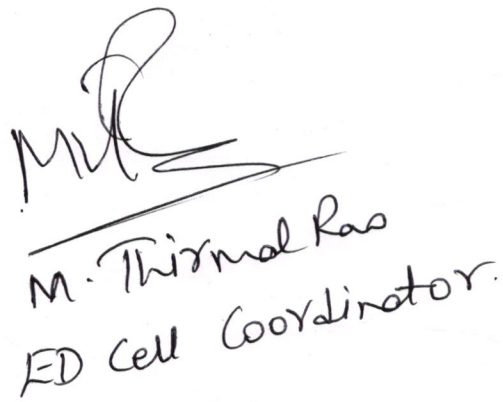 M. Thirmal Rao
ED Cell Coordinator.